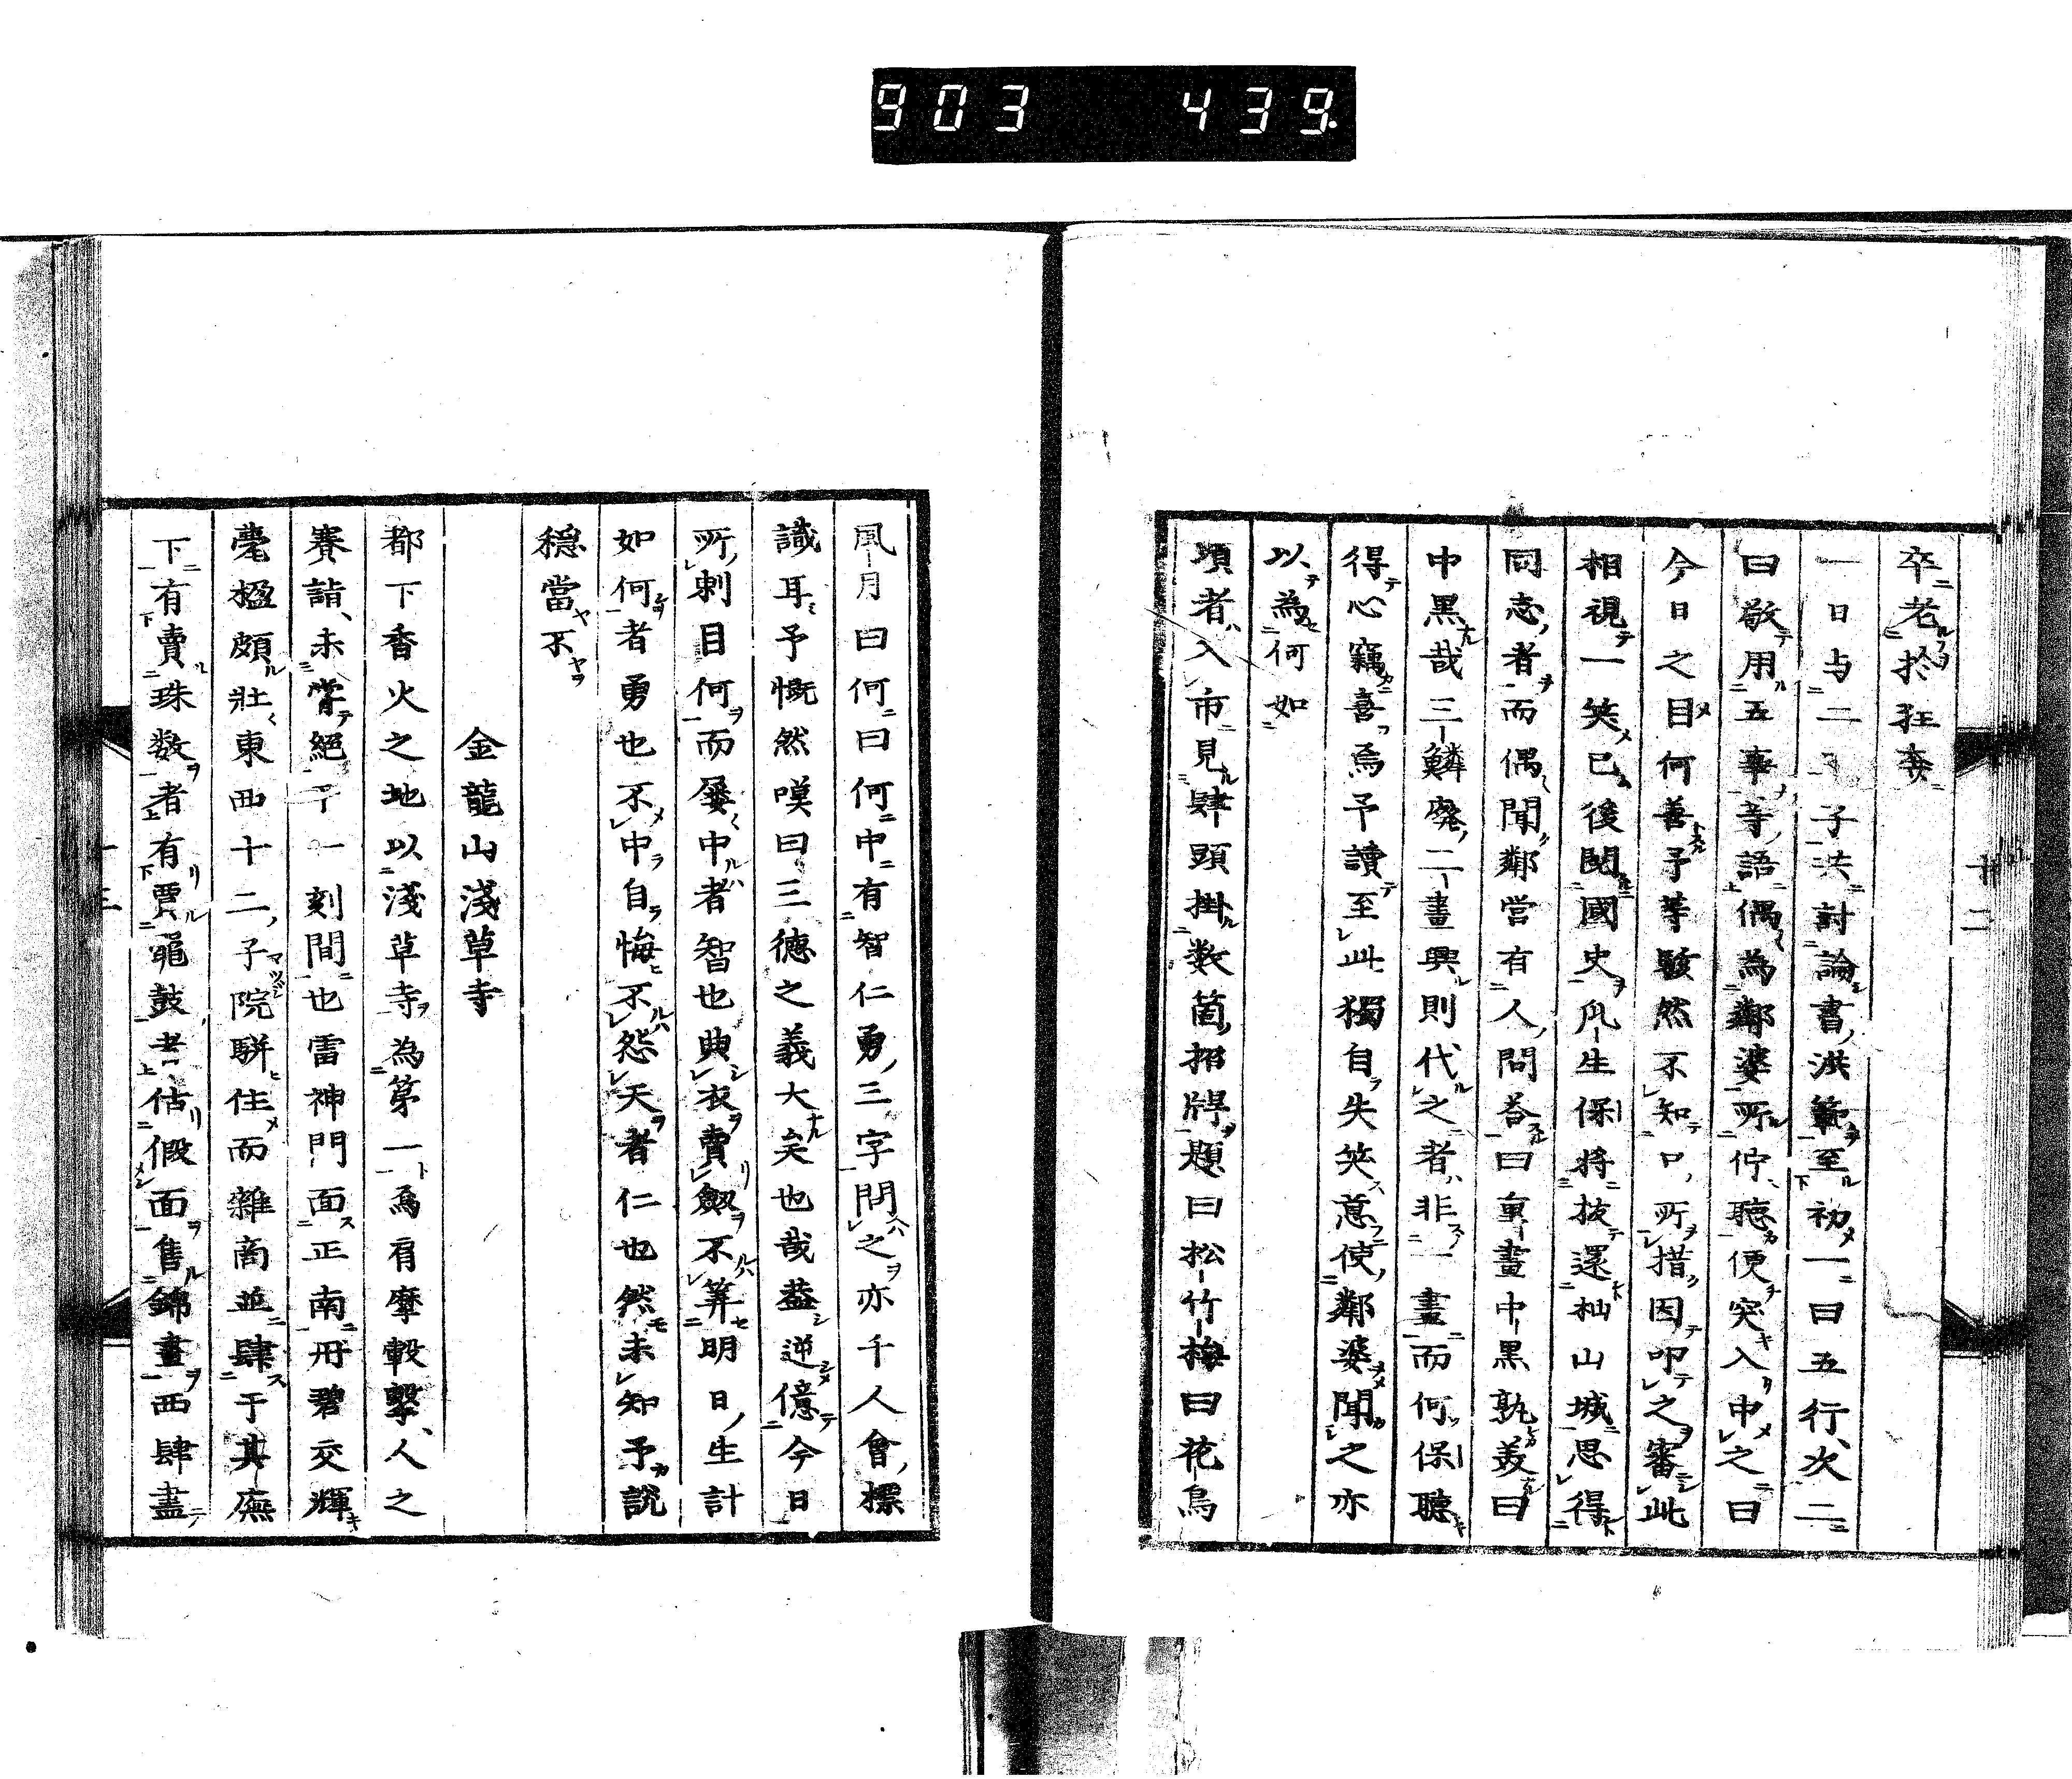 903 439.
卒老於狂奔
一日与二三子共討論書洪範至初一曰五行次二
曰敬用五事等語偶為鄰婆所佇聽便突入中之曰
今日之目何善予等駭然不知口所措因叩之審此
相視一笑已後閱國史凡生保將拔還杣山城思得
同志者而偶聞鄰営有人問答曰重畫中黒孰美曰
中黒哉三鱗廃二畫興則代之者非一畫而何保聽
得心竊喜焉予讀至此獨自失笑意使鄰婆聞之亦
以為何如
頃者入市見肆頭掛数箇招牌題曰松竹梅曰花鳥
十二
風月曰何曰何中有智仁勇三字問之亦千人會標
識耳予慨然嘆曰三德之義大矣也哉葢逆億今日
所剌目何而屡中者智也典衣賣劔不算明日生計
如何者勇也不中自悔不怨天者仁也然未知予說
穏當不
金龍山淺草寺
都下香火之地以淺草寺為第一肩摩轂擊人之
賽詣未嘗絕于一刻間也雷神門面正南丹碧交輝
甍楹頗壯東西十二子院駢住而雜商並肆于其廡
下有賣珠数者有賈黽鼓者估假面售錦畫西肆盡
十三